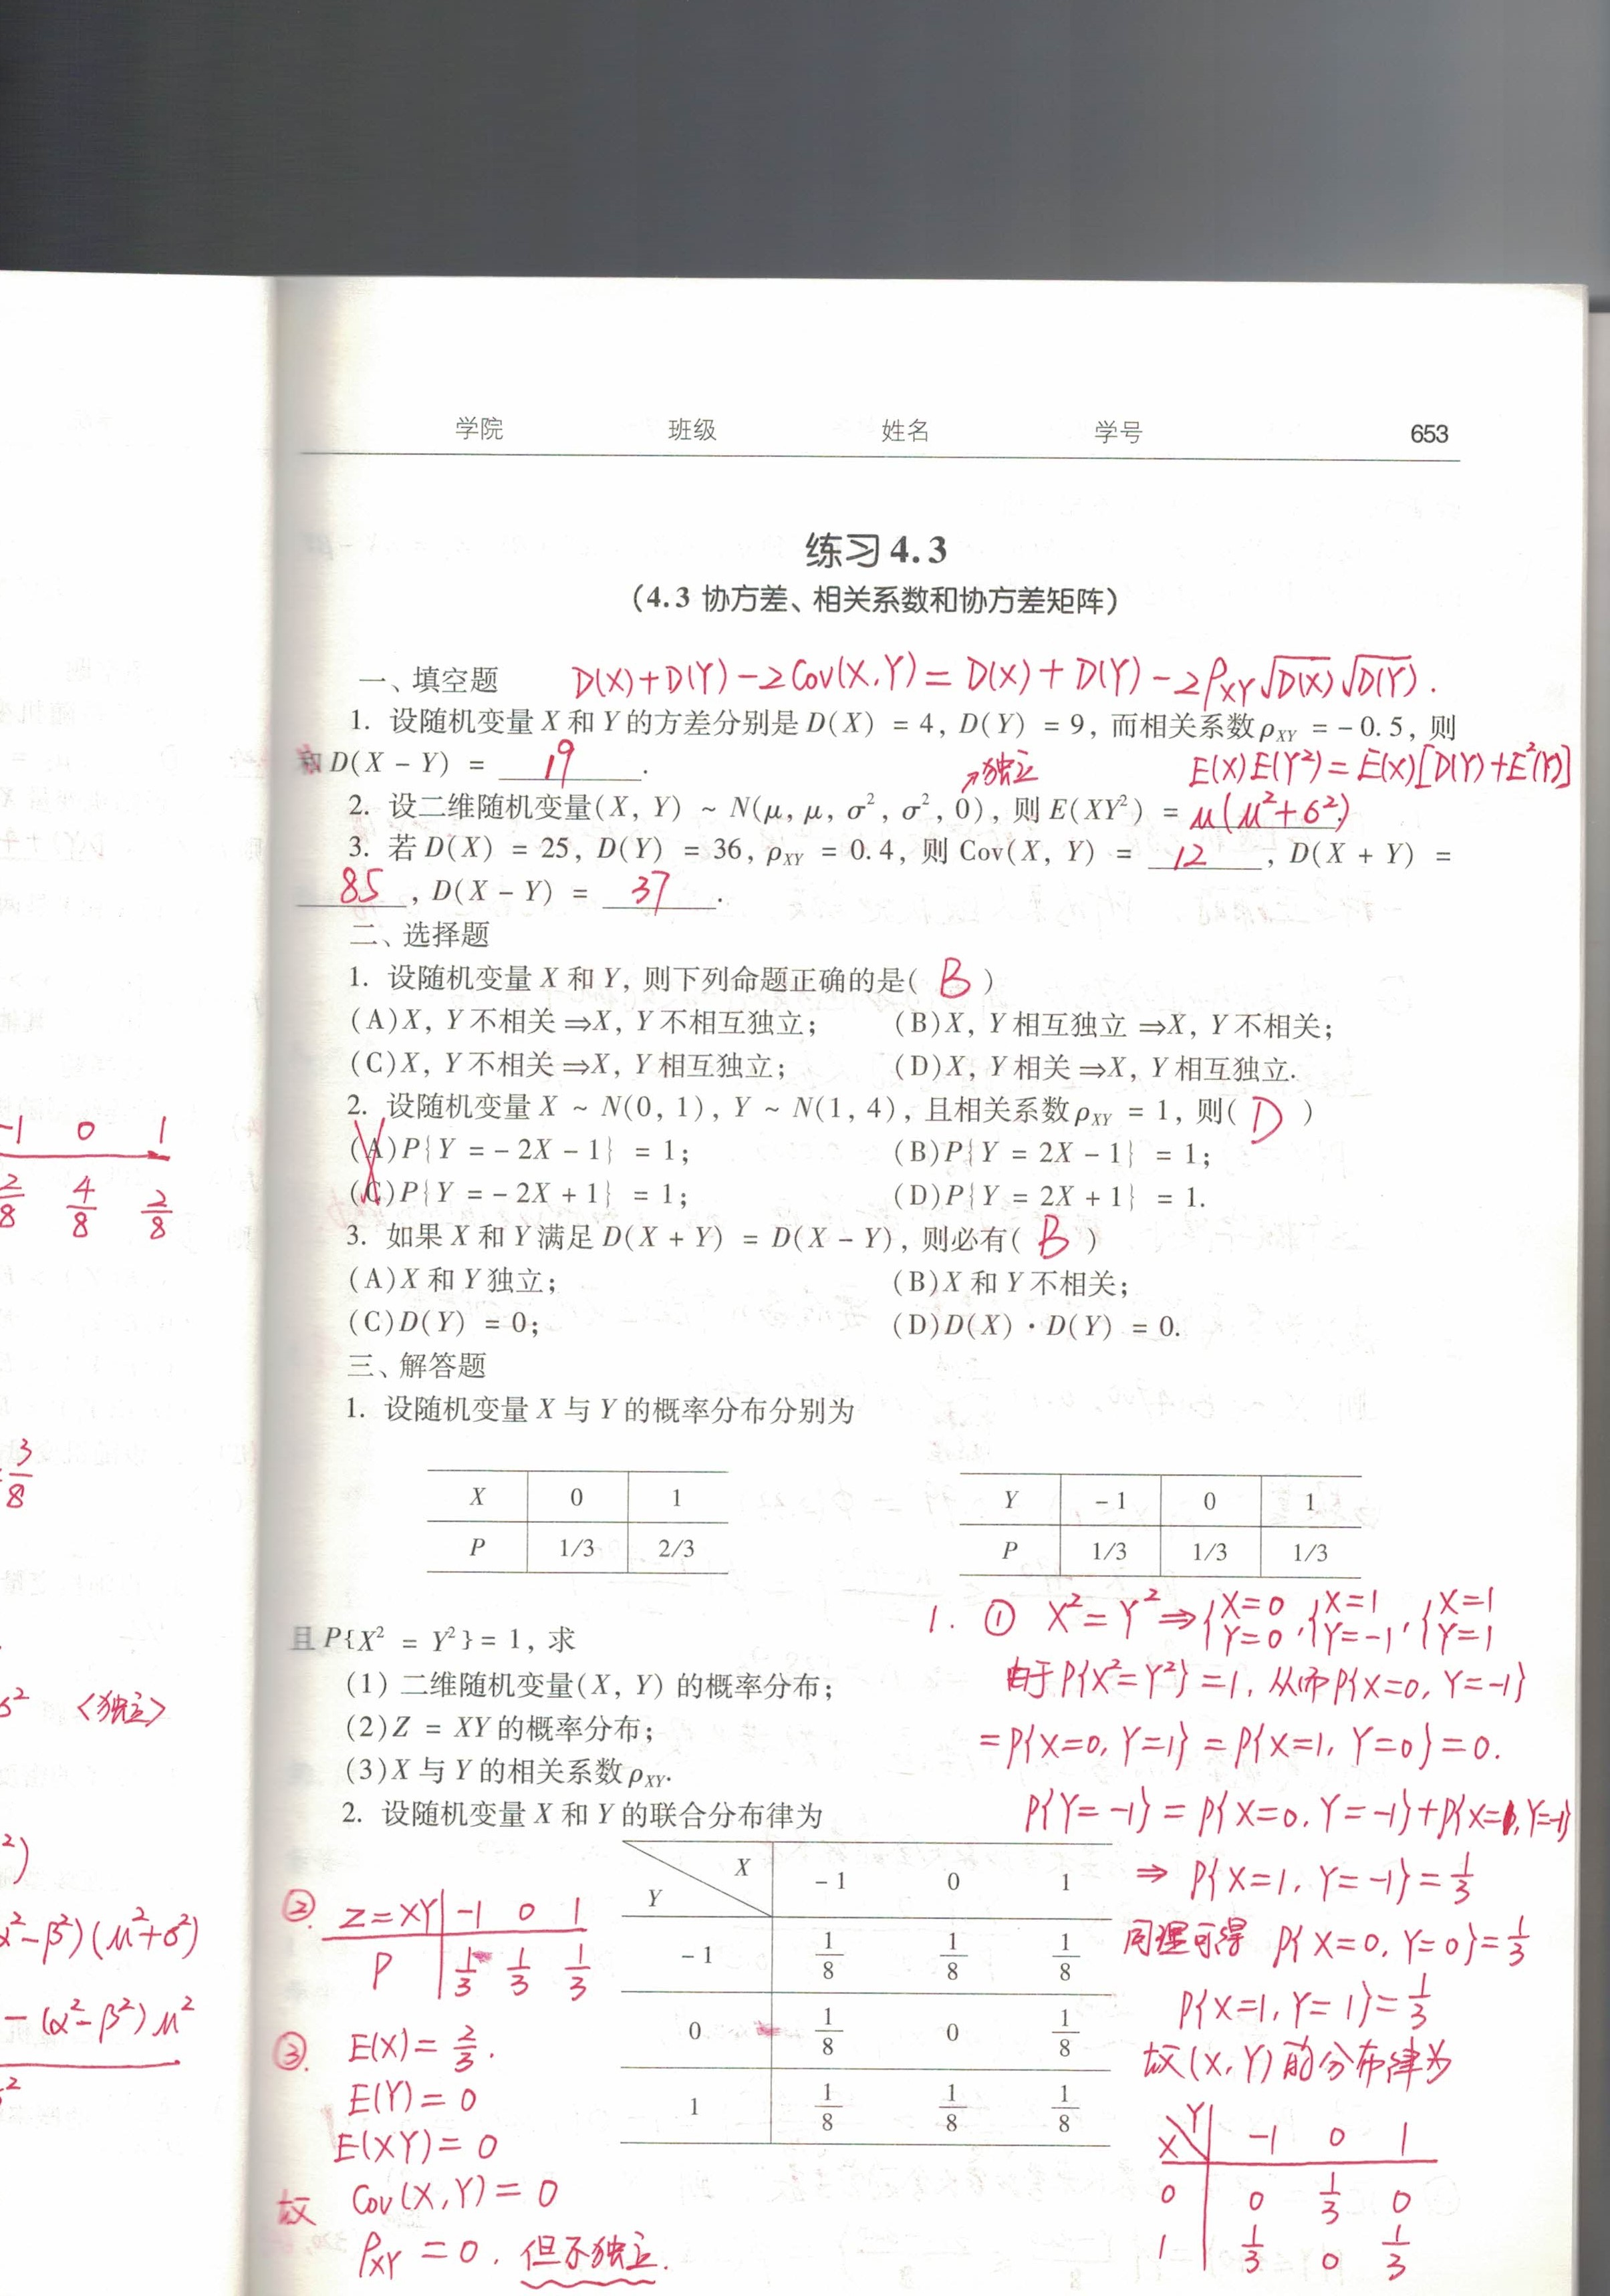 学院 班级 姓名 学号 653
练习4.3
(4.3 协方差、相关系数和协方差矩阵)
一、填空题 D(X)+D(Y)-2Cov(X,Y)=D(X)+D(Y)-2ρXY√D(X)√D(Y).
1. 设随机变量 X 和 Y 的方差分别是 D(X) = 4, D(Y) = 9, 而相关系数 ρXY = -0.5, 则
D(X - Y) = 19.
↗独立 E(X)E(Y²)=E(X)[D(Y)+E²(Y)]
2. 设二维随机变量(X, Y) ~ N(μ, μ, σ², σ², 0), 则 E(XY²) = μ(μ²+σ²).
3. 若 D(X) = 25, D(Y) = 36, ρXY = 0.4, 则 Cov(X, Y) = 12, D(X + Y) =
85, D(X - Y) = 37.
二、选择题
1. 设随机变量 X 和 Y, 则下列命题正确的是( B )
(A)X, Y 不相关 ⇒X, Y 不相互独立; (B)X, Y 相互独立 ⇒X, Y 不相关;
(C)X, Y 不相关 ⇒X, Y 相互独立; (D)X, Y 相关 ⇒X, Y 相互独立.
2. 设随机变量 X ~ N(0, 1), Y ~ N(1, 4), 且相关系数 ρXY = 1, 则( D )
(A)P{Y = -2X - 1} = 1; (B)P{Y = 2X - 1} = 1;
(C)P{Y = -2X + 1} = 1; (D)P{Y = 2X + 1} = 1.
3. 如果 X 和 Y 满足 D(X + Y) = D(X - Y), 则必有( B )
(A)X 和 Y 独立; (B)X 和 Y 不相关;
(C)D(Y) = 0; (D)D(X)·D(Y) = 0.
三、解答题
1. 设随机变量 X 与 Y 的概率分布分别为
X 0 1
P 1/3 2/3
Y -1 0 1
P 1/3 1/3 1/3
且 P{X² = Y²} = 1, 求
(1) 二维随机变量(X, Y) 的概率分布;
(2) Z = XY 的概率分布;
(3) X 与 Y 的相关系数 ρXY.
2. 设随机变量 X 和 Y 的联合分布律为
X -1 0 1
Y
-1 1/8 1/8 1/8
0 1/8 0 1/8
1 1/8 1/8 1/8
1. ① X²=Y²⇒{X=0 Y=0, {X=1 Y=-1, {X=1 Y=1
由于P{X²=Y²}=1, 从而P{X=0, Y=-1}
=P{X=0, Y=1}=P{X=1, Y=0}=0.
P{Y=-1}=P{X=0, Y=-1}+P{X=1, Y=-1}
⇒ P{X=1, Y=-1}=1/3
同理可得 P{X=0, Y=0}=1/3
P{X=1, Y=1}=1/3
故(X,Y)的分布律为
X Y -1 0 1
0 0 1/3 0
1 1/3 0 1/3
②. Z=XY -1 0 1
P 1/3 1/3 1/3
③. E(X)=2/3.
E(Y)=0
E(XY)=0
故 Cov(X,Y)=0
ρXY=0. 但不独立.
-1 0 1
2/8 4/8 2/8
3/8
<独立>
-β²)(μ²+σ²)
-(α²-β²)μ²